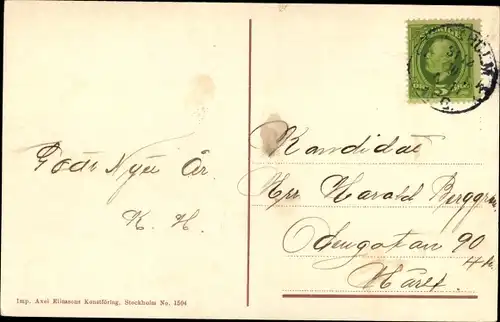 Godt Nytt År.
K. H.
Kandidat
Herr Harald Berggren
Odengatan 90
4 tr.
Härst.
5
Imp. Axel Eliassons Konstförlag, Stockholm No. 1504